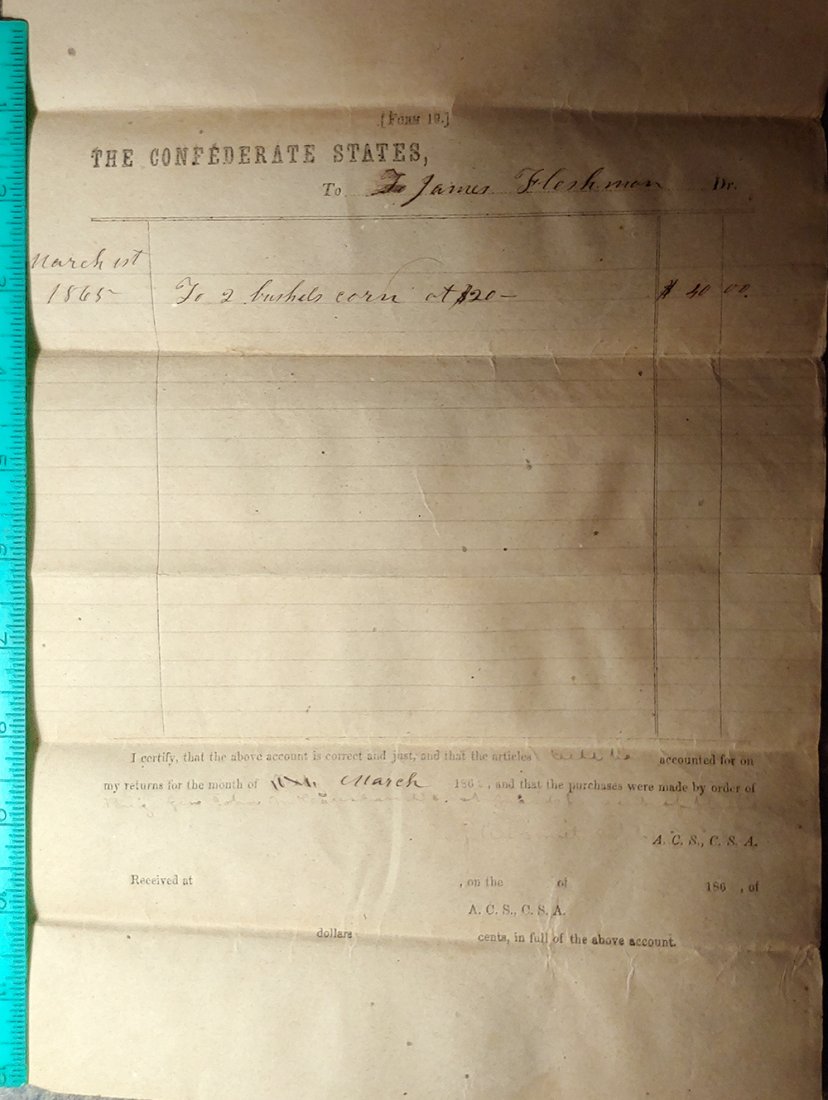 [Form 19.]
THE CONFEDERATE STATES,
To James Fleshman Dr.
March 1st
1865 To 2 bushels corn at $20 — $ 40 00
I certify, that the above account is correct and just, and that the articles accounted for on
my returns for the month of March 186 , and that the purchases were made by order of
A. C. S., C. S. A.
Received at , on the of 186 , of
A. C. S., C. S. A.
dollars cents, in full of the above account.